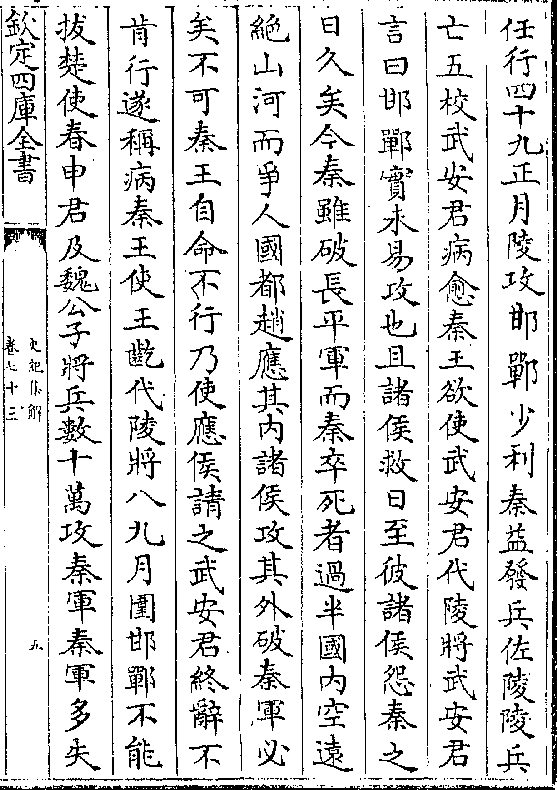 任行四十九正月陵攻邯鄲少利秦益發兵佐陵陵兵
亡五校武安君病愈秦王欲使武安君代陵將武安君
言曰邯鄲實未易攻也且諸侯救日至彼諸侯怨秦之
日久矣今秦雖破長平軍而秦卒死者過半國内空遠
絶山河而爭人國都趙應其内諸侯攻其外破秦軍必
矣不可秦王自命不行乃使應侯請之武安君終辭不
肯行遂稱病秦王使王齕代陵將八九月圍邯鄲不能
拔楚使春申君及魏公子將兵數十萬攻秦軍秦軍多失
欽定四庫全書
史記集解
卷七十三
九